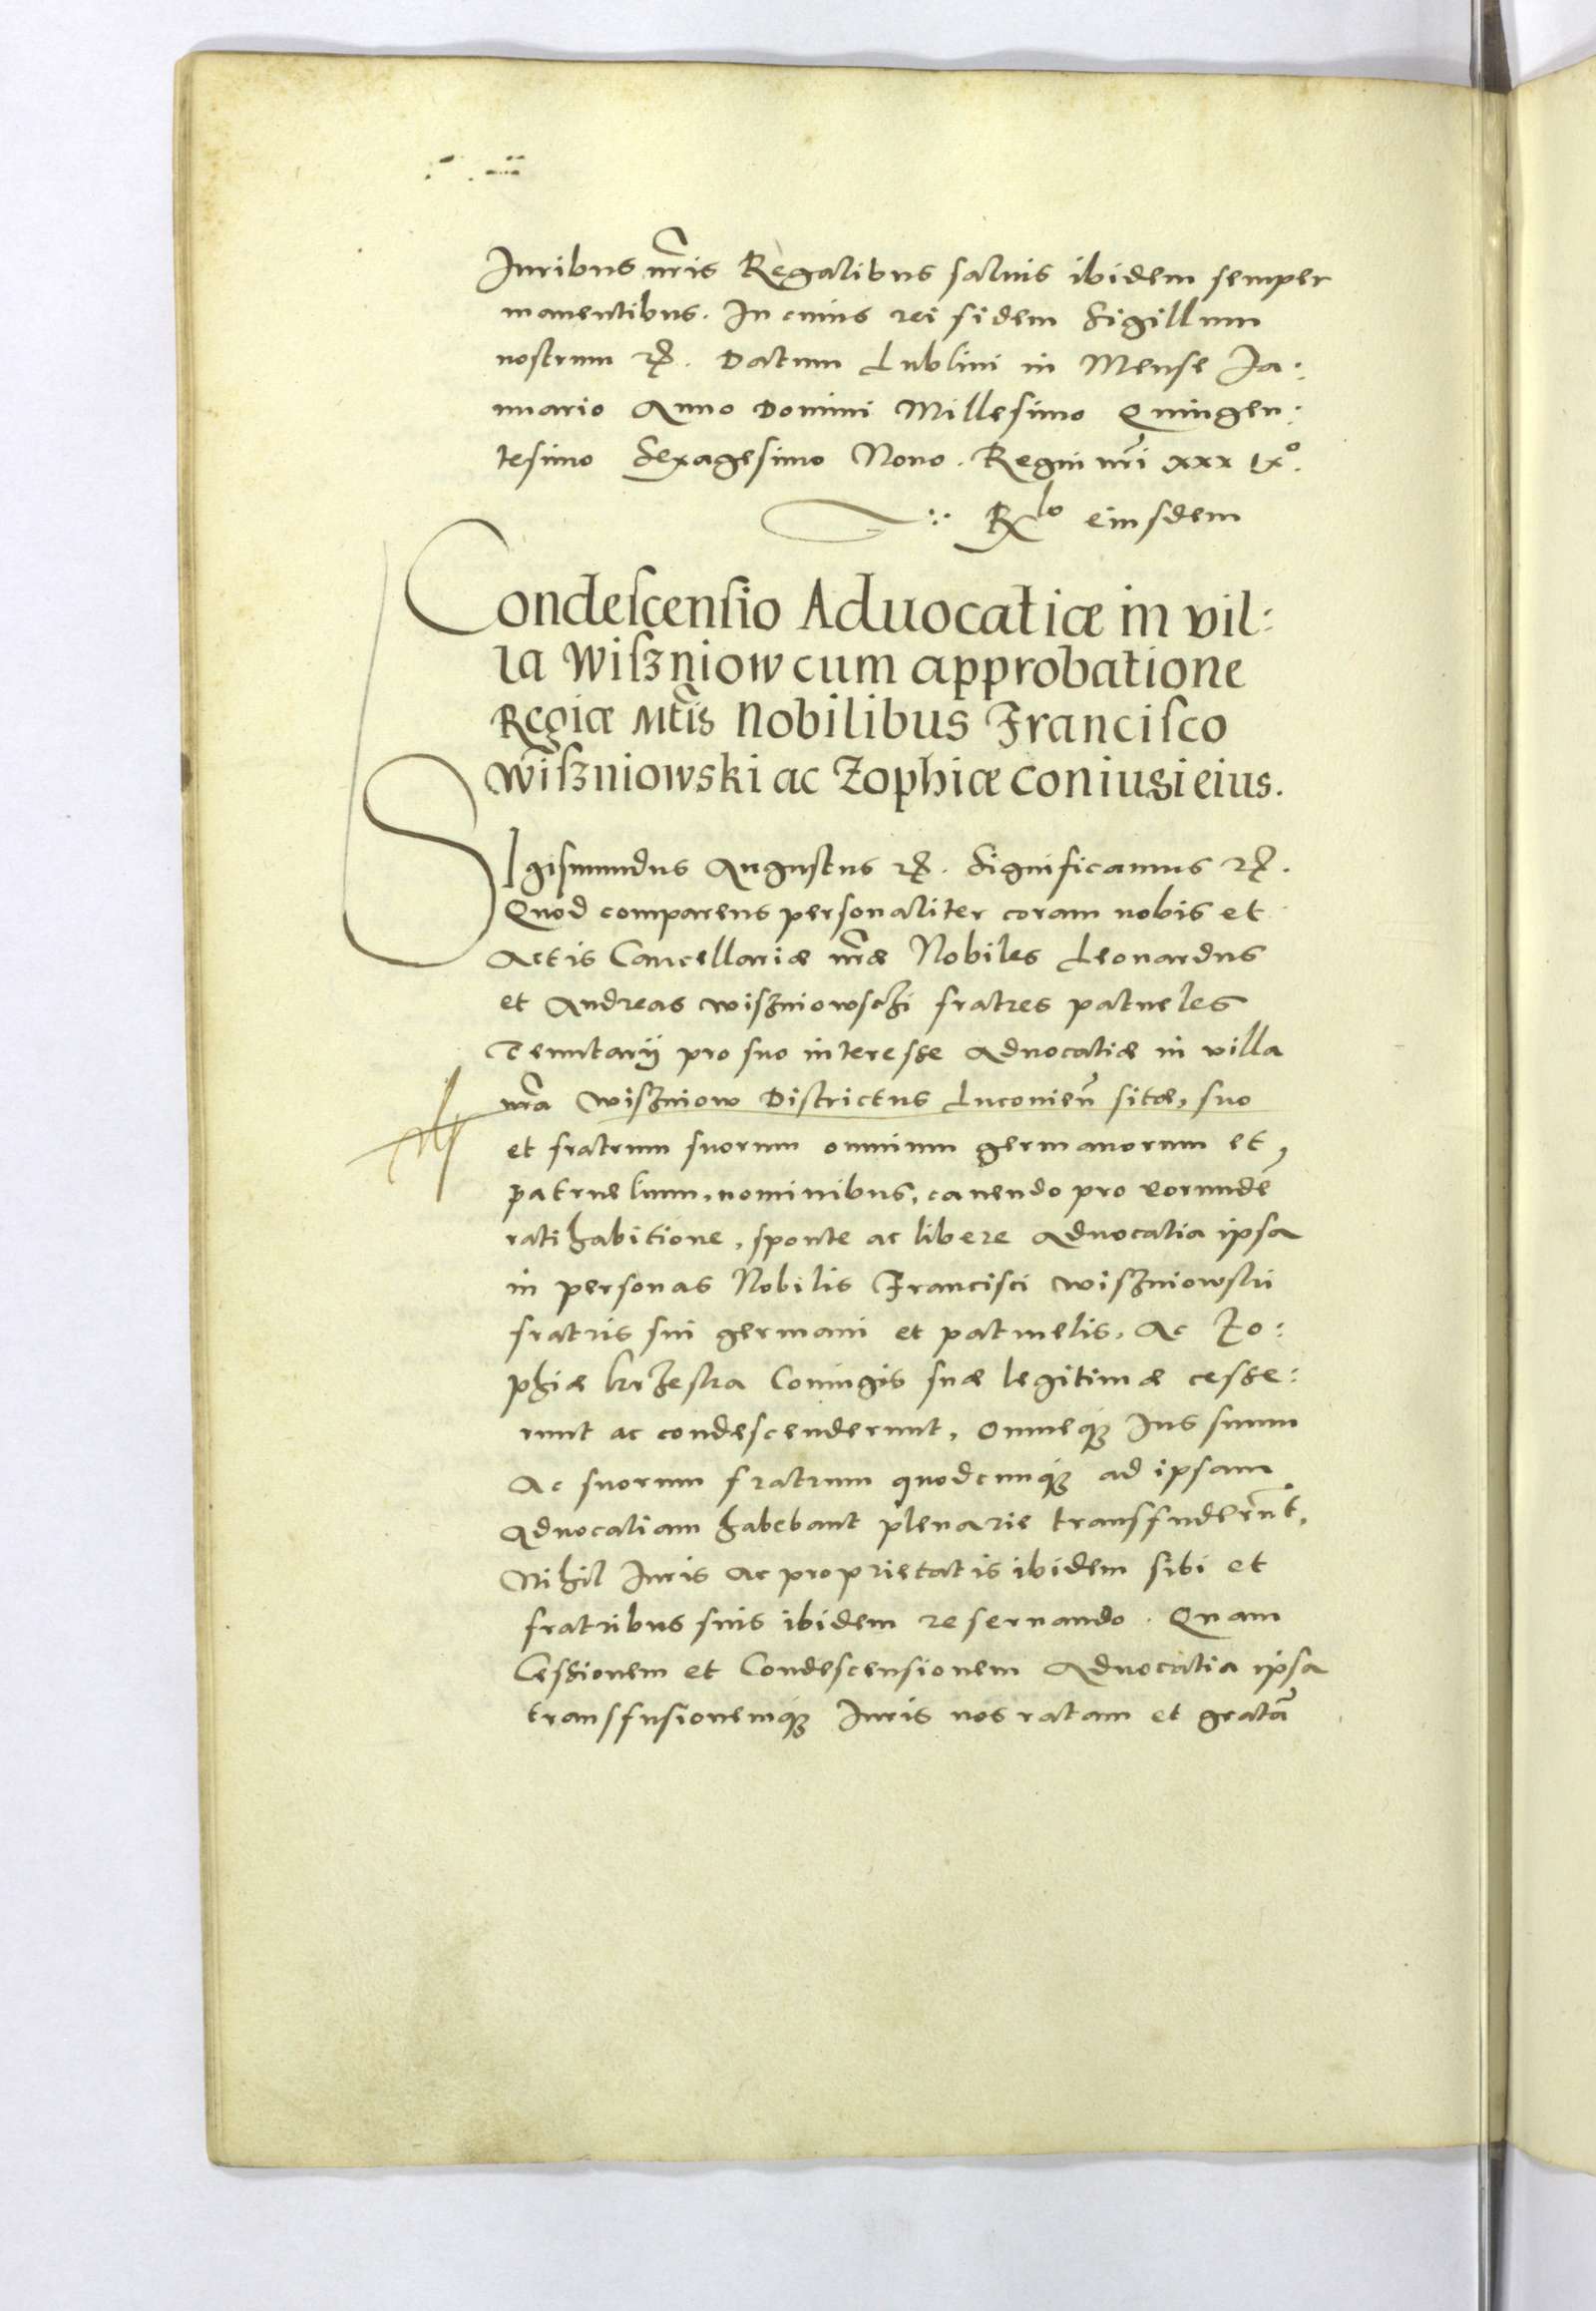 Iuribus nr̃is Regalibus saluis ibidem semper
manentibus. In cuius rei fidem Sigillum
nostrum etc. Datum Lublini in Mense Ja:
nuario Anno Domini Millesimo Quingen:
tesimo Sexagesimo Nono. Regni nr̃i xxx ixº.
Rlº eiusdem
Condescensio Aduocatiæ in vil:
la Wiszniow cum approbatione
Regiæ Mt̃is Nobilibus Francisco
Wiszniowski ac Zophiæ coniugi eius.
SIgismundus Augustus etc. Significamus etc.
Quod comparens personaliter coram nobis et
Actis Cancellariæ nr̃æ Nobiles Leonardus
et Andreas wiszniowschi fratres patrueles
Tenutarij pro suo interesse Aduocatiæ in villa
nr̃a wiszniow Districtus Luconien̄ sitæ, suo
et fratrum suorum omnium germanorum et,
patruelium, nominibus, cauendo pro eorundē
ratihabitione, sponte ac libere Aduocatia ipsa
in personas Nobilis Francisci wiszniowski
fratris sui germani et patruelis, Ac Zo:
phiæ Coniugis suæ legitimæ cesse:
runt ac condescenderunt, Omneq3 Ius suum
Ac suorum fratrum quodcunq3 ad ipsam
Aduocatiam habebant plenarie transfuderūt,
Nihil Iuris Ac proprietatis ibidem sibi et
fratribus suis ibidem reseruando. Quam
Cessionem et Condescensionem Aduocatia ipsa
transfusionemq3 Iuris nos ratam et gratā